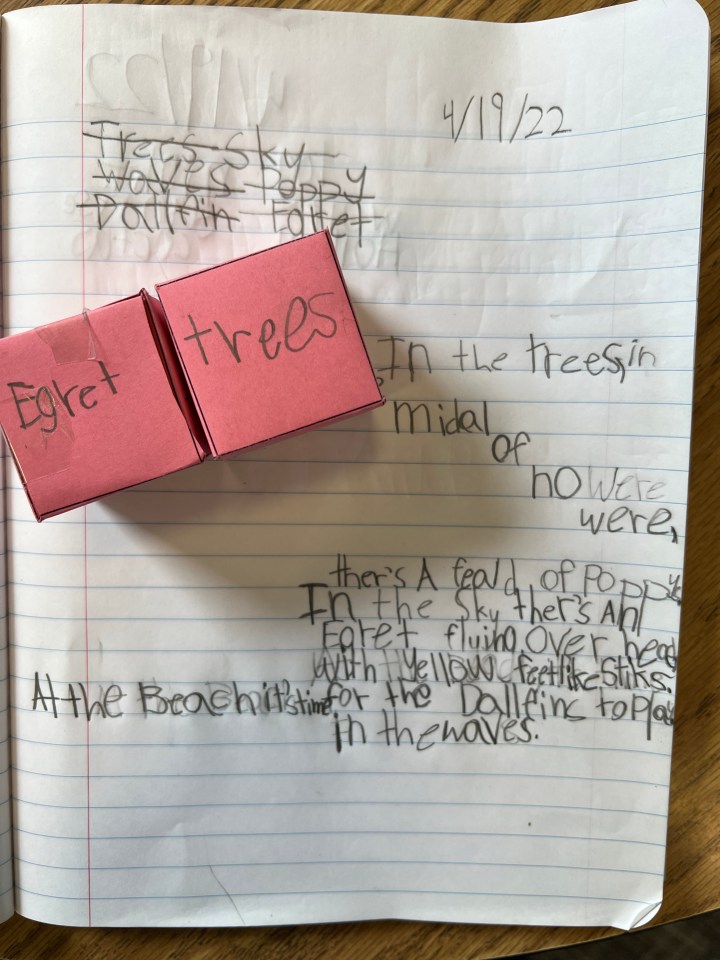 4/19/22
Trees Sky
Waves Poppy
Dallfin Egret
Egret
trees
In the trees, in
midal
of
no were
were,
ther's A feald of Poppys
In the Sky ther's An
Egret flying Over head
with Yellow feet like Stiks.
At the Beach it's time for the Dallfins to Play
in the waves.